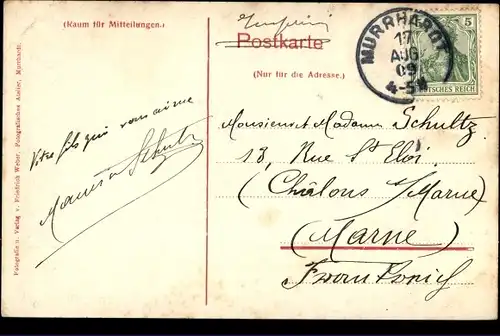 (Raum für Mitteilungen.)
Postkarte
(Nur für die Adresse.)
MURRHARDT
17
AUG
09
4-5N
5
DEUTSCHES REICH
Votre fils qui vous aime
Schultz
Monsieur et Madame Schultz
13, Rue St Eloi
(Châlons s/Marne)
(Marne)
Frankreich
Fotografie u. Verlag v. Friedrich Weber, Fotografisches Atelier, Murrhardt.